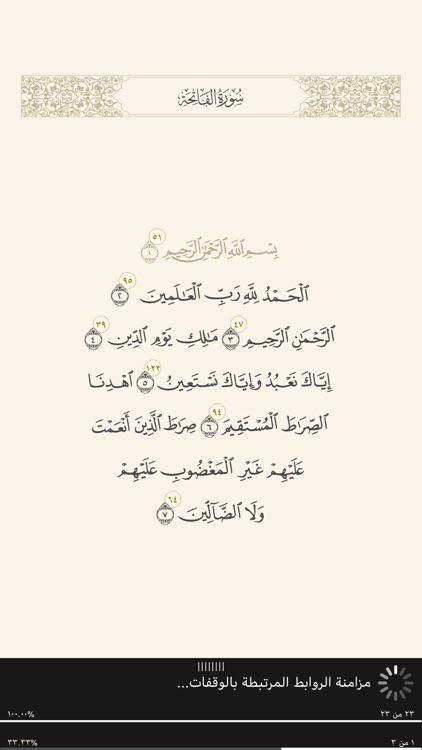 سُورَةُ الفَاتِحَةِ
بِسْمِ ٱللَّهِ ٱلرَّحْمَٰنِ ٱلرَّحِيمِ ١ ٥١
ٱلْحَمْدُ لِلَّهِ رَبِّ ٱلْعَٰلَمِينَ ٢ ٩٥
ٱلرَّحْمَٰنِ ٱلرَّحِيمِ ٣ ٤٧ مَٰلِكِ يَوْمِ ٱلدِّينِ ٤ ٣٩
إِيَّاكَ نَعْبُدُ وَإِيَّاكَ نَسْتَعِينُ ٥ ١٢٢ ٱهْدِنَا
ٱلصِّرَٰطَ ٱلْمُسْتَقِيمَ ٦ ٩٤ صِرَٰطَ ٱلَّذِينَ أَنْعَمْتَ
عَلَيْهِمْ غَيْرِ ٱلْمَغْضُوبِ عَلَيْهِمْ
وَلَا ٱلضَّآلِّينَ ٧ ٦٤
مزامنة الروابط المرتبطة بالوقفات...
٢٣ من ٢٣ ١٠٠.٠٠%
١ من ٣ ٣٣.٣٣%